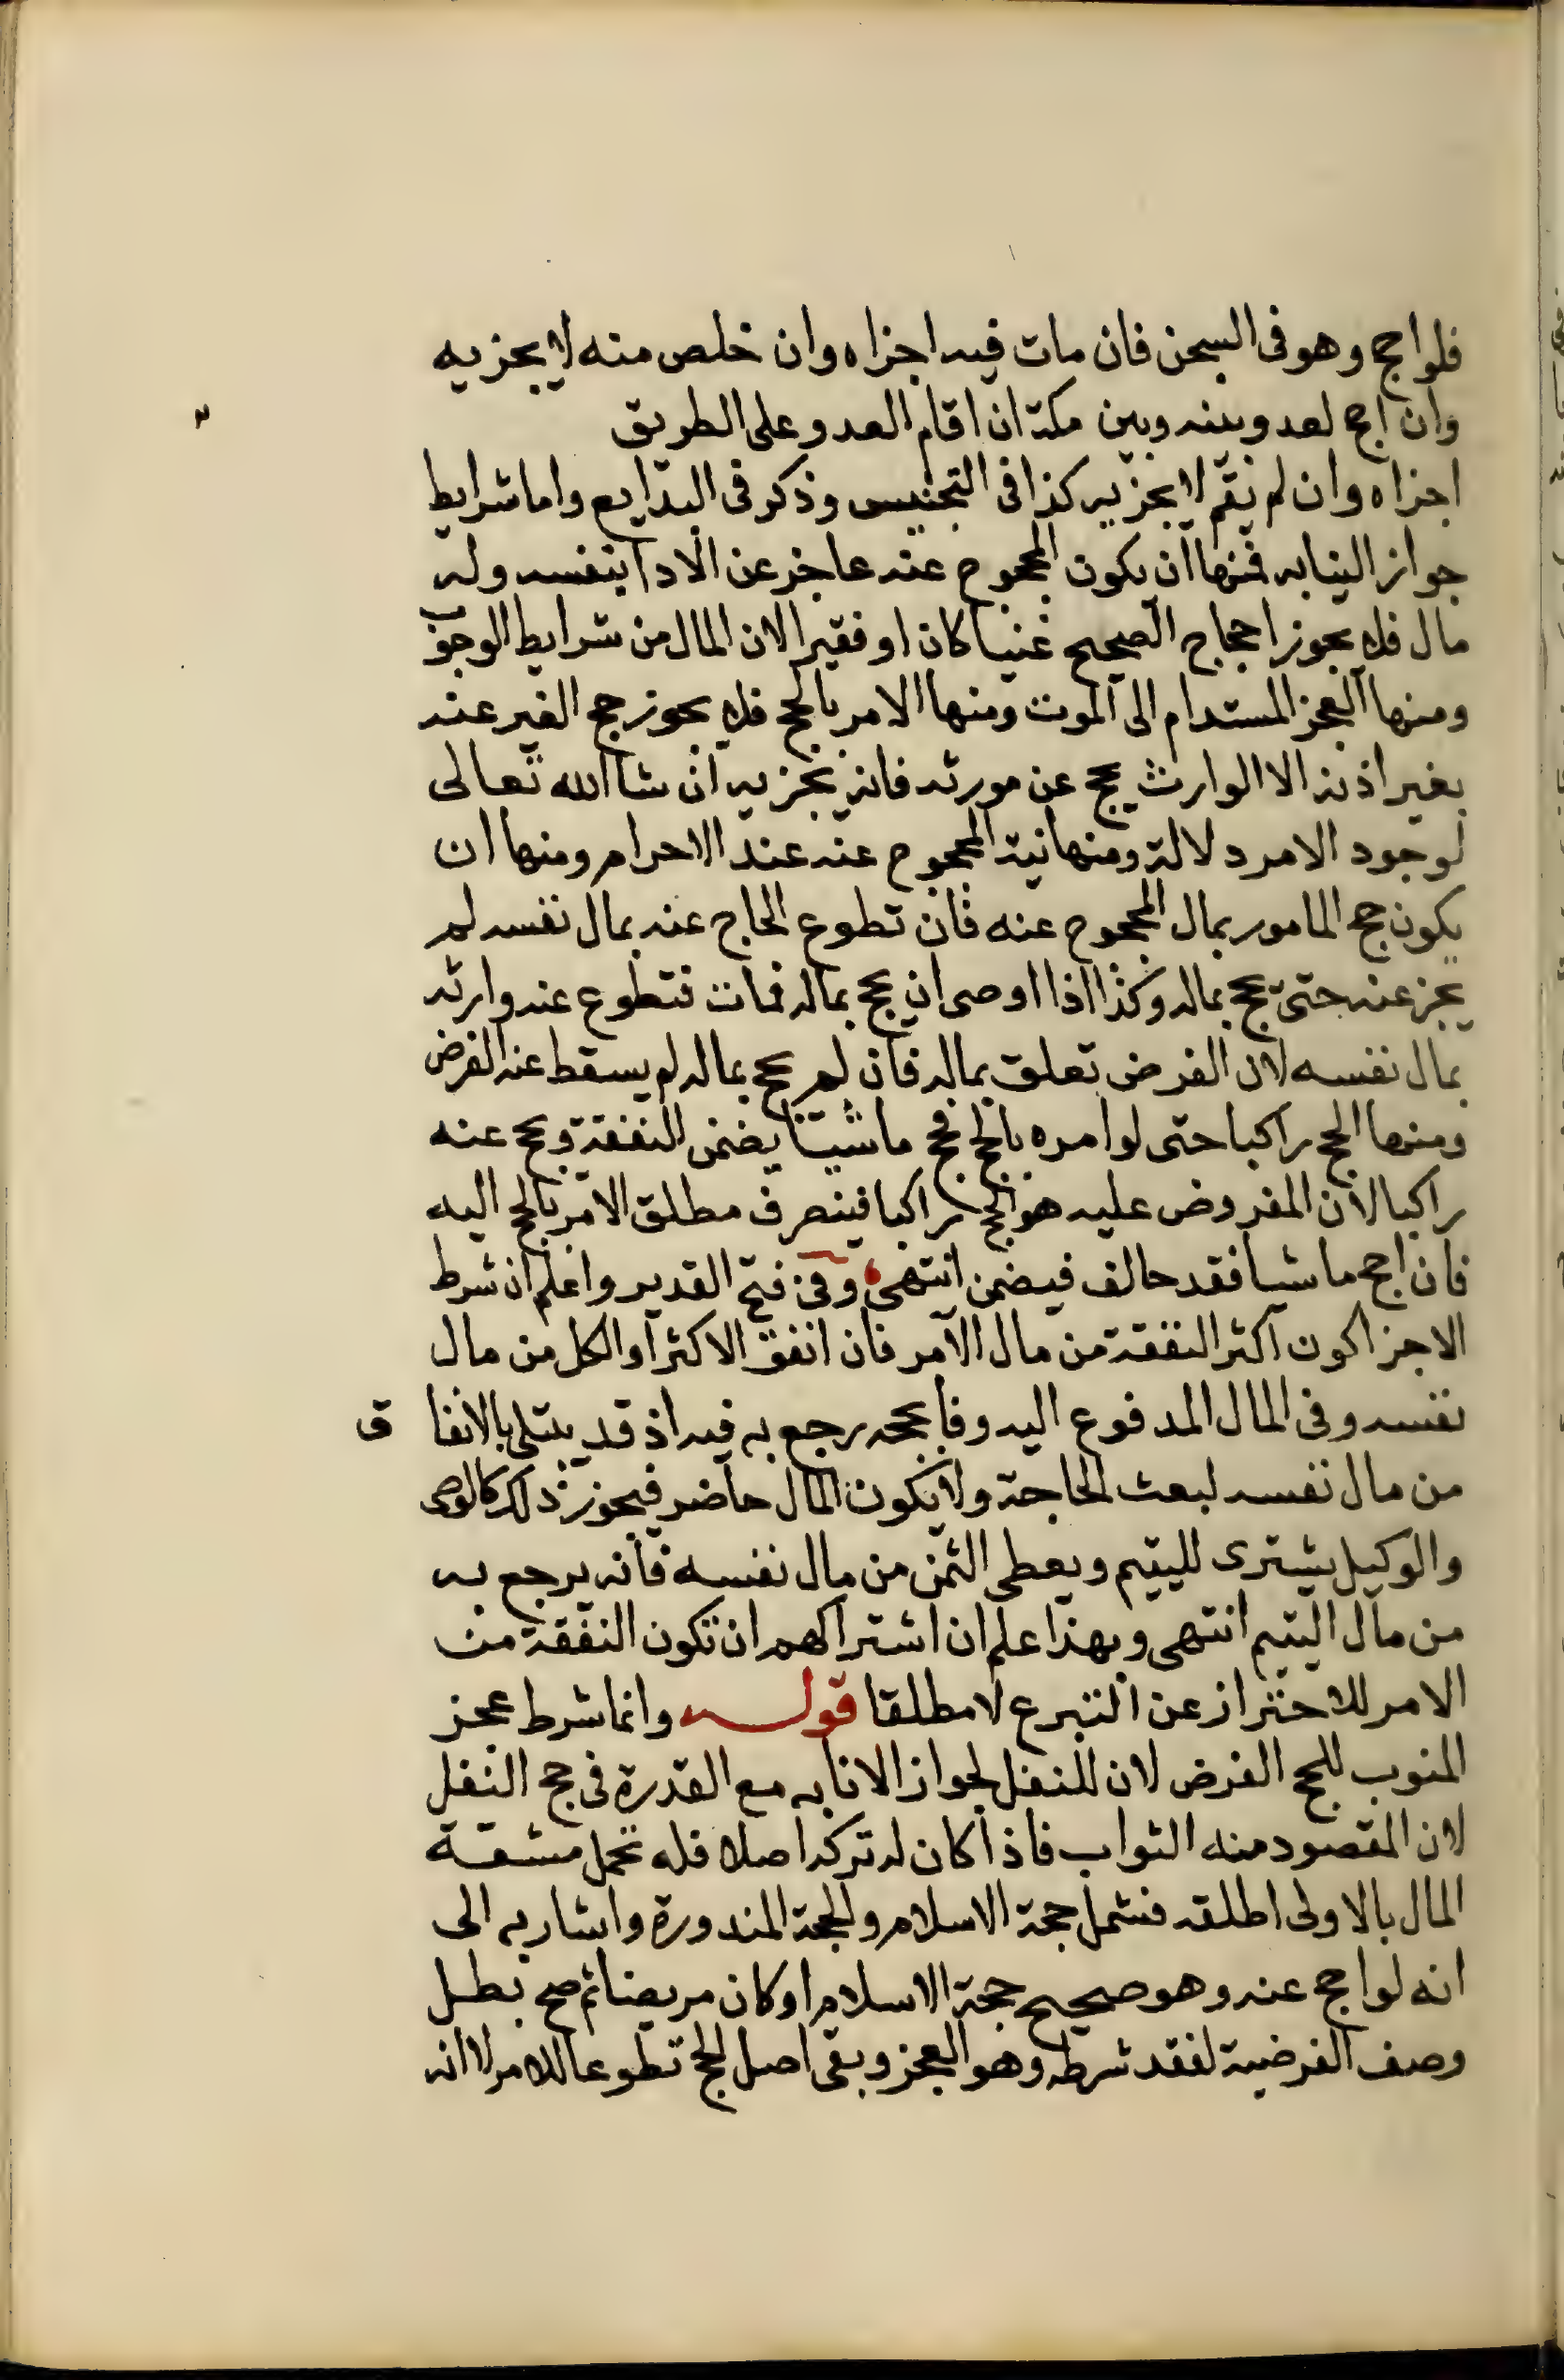 فلو احج وهو فى السجن فان مات فيه اجزاه وان خلص منه لا يجزيه
وان احج لعدو بينه وبين مكة ان اقام العدو على الطريق
اجزاه وان لم يقم لا يجزيه كذا فى التجنيس وذكر فى البدايع واما شرايط
جواز النيابه فمنها ان يكون المحجوج عنه عاجز عن الادا بنفسه وله
مال فلا يجوز احجاج الصحيح غنيا كان او فقيرا لان المال من شرايط الوجوب
ومنها العجز المستدام الى الموت ومنها الامر بالحج فلا يجوز حج الغير عنه
بغير اذنه الا الوارث يحج عن مورثه فانه يجزيه ان شا الله تعالى
لوجود الامر دلالة ومنها نية المحجوج عنه عند الاحرام ومنها ان
يكون حج المامور بمال المحجوج عنه فان تطوع الحاج عنه بمال نفسه لم
يجز عنه حتى يحج بماله وكذا اذا اوصى ان يحج بماله فمات فتطوع عنه وارثه
بمال نفسه لان الفرض تعلق بماله فان لم يحج بماله لم يسقط عنه الفرض
ومنها الحج راكبا حتى لو امره بالحج فحج ماشيا يضمن النفقة ويحج عنه
راكبا لان المفروض عليه هو الحج راكبا فينصرف مطلق الامر بالحج اليه
فان احج ماشيا فقد خالف فيضمن انتهى وفى فتح القدير واعلم ان شرط
الاجزا كون اكثر النفقة من مال الآمر فان انفق الاكثر او الكل من مال
نفسه وفى المال المدفوع اليه وفا بحجه رجع به فيه اذ قد يبتلى بالانفا ق
من مال نفسه لبعث الحاجة ولا يكون المال حاضر فيجوز ذلك كالوصى
والوكيل يشترى لليتيم ويعطى الثمن من مال نفسه فانه يرجع به
من مال اليتيم انتهى وبهذا علم ان اشتراكهم ان تكون النفقة من
الامر للاحتراز عن التبرع لا مطلقا قوله وانما شرط عجز
المنوب للحج الفرض لان للنفل لجواز الانابه مع القدرة فى حج النفل
لان المقصود منه الثواب فاذا كان له تركه اصلا فله تحمل مشقة
المال بالاولى اطلقه فشمل حجة الاسلام والحجة المنذورة واشار به الى
انه لو احج عنه وهو صحيح حجة الاسلام او كان مريضا ثم صح بطل
وصف الفرضية لفقد شرطه وهو العجز وبقى اصل الحج تطوعا للامر لا انه